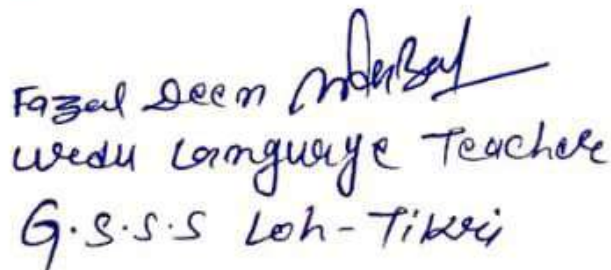 Fazal Deen
Urdu Language Teacher
G.S.S.S Loh-Tikri